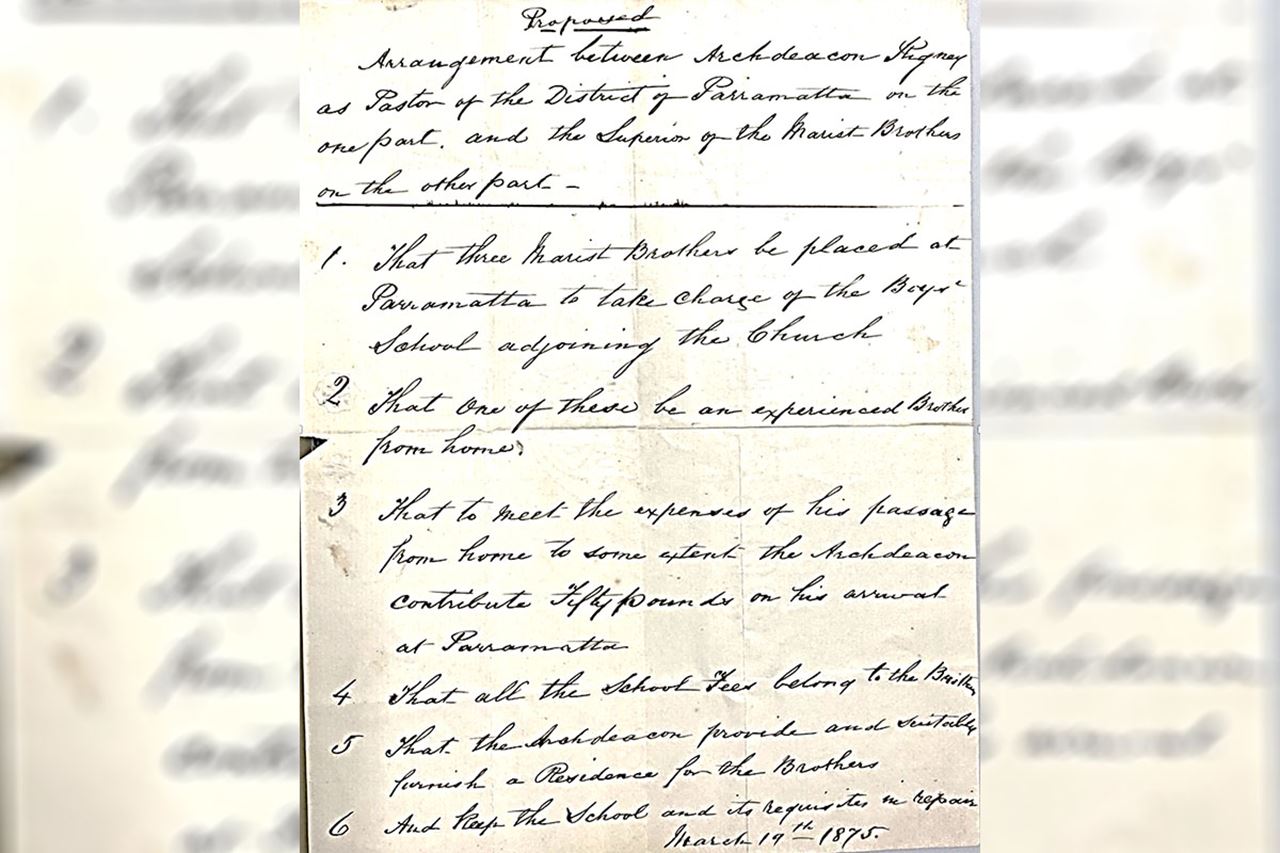 Proposed
Arrangement between Archdeacon Rigney
as Pastor of the District of Parramatta on the
one part, and the Superior of the Marist Brothers
on the other part —
1. That three Marist Brothers be placed at
Parramatta to take charge of the Boys'
School adjoining the Church
2 That One of these be an experienced Brother
from home.
3 That to meet the expenses of his passage
from home to some extent the Archdeacon
contribute Fifty pounds on his arrival
at Parramatta
4 That all the School Fees belong to the Brothers
5 That the Archdeacon provide and suitably
furnish a Residence for the Brothers
6 And keep the School and its requisites in repair
March 19th 1875.